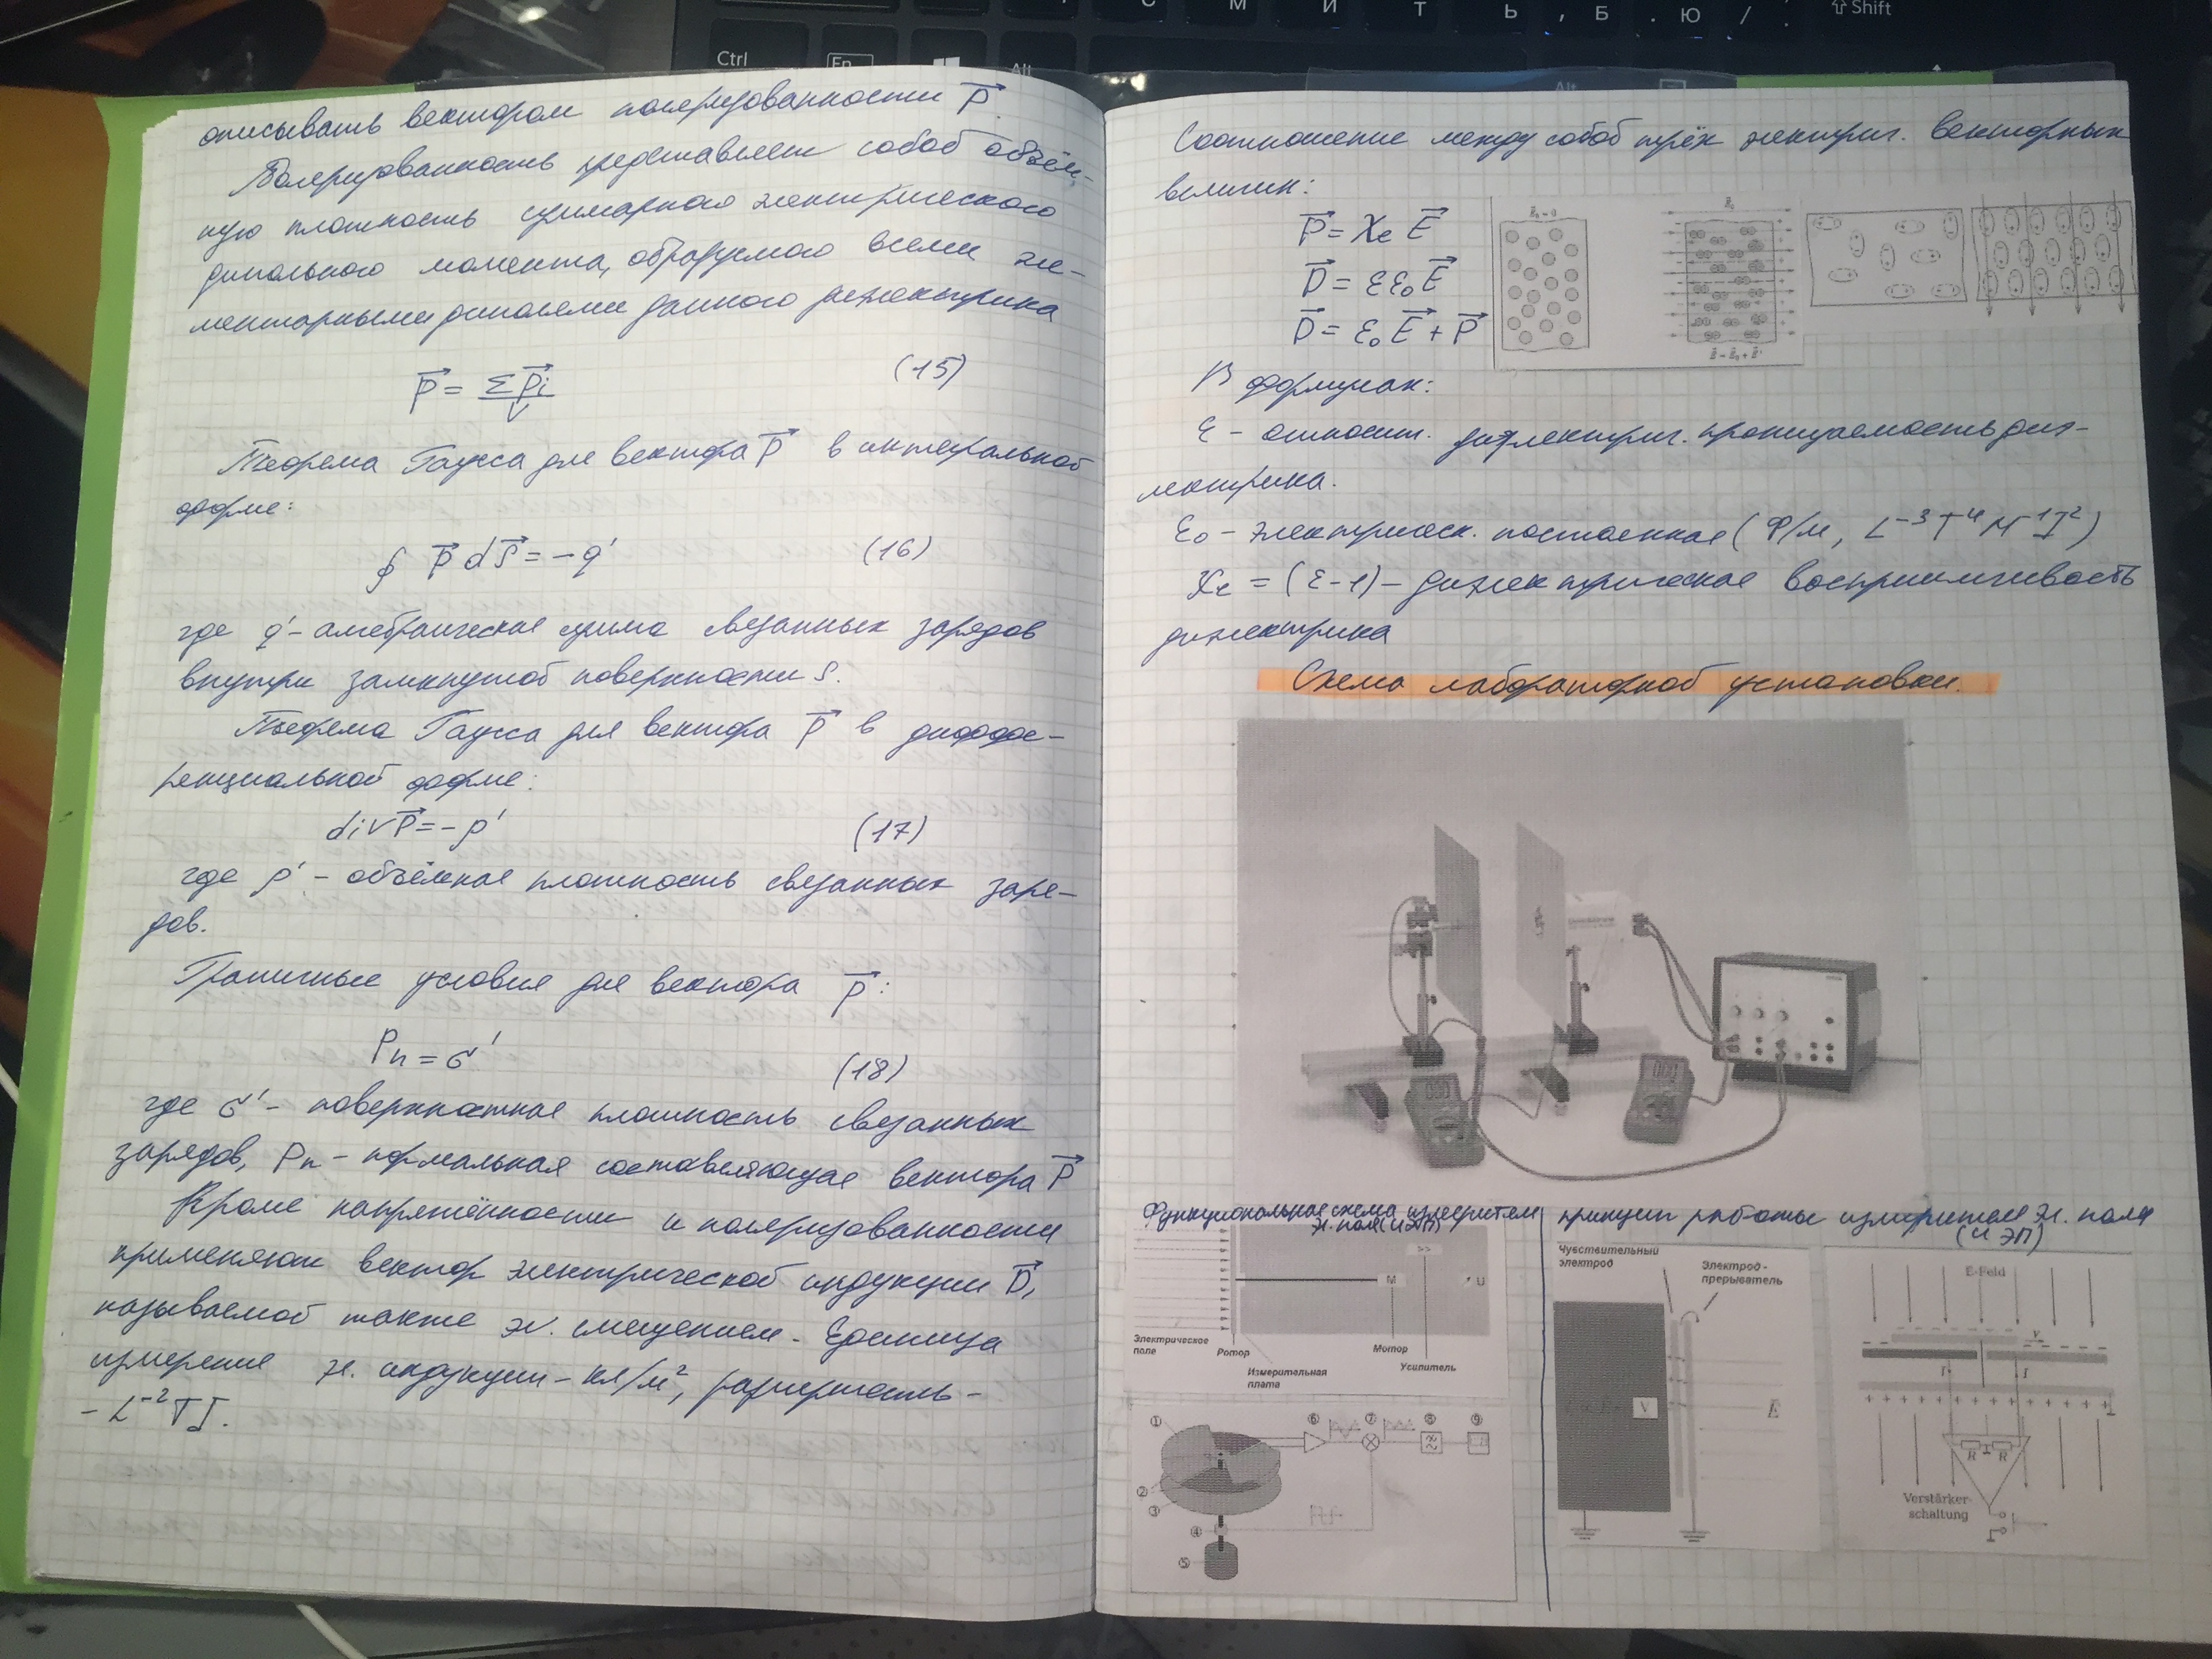 описывать вектором поляризованности P⃗.
Поляризованность представляет собой объём-
ную плотность суммарного электрического
дипольного момента, образуемого всеми эле-
ментарными диполями данного диэлектрика
P⃗ = Σp⃗i / V (15)
Теорема Гаусса для вектора P⃗ в интегральной
форме:
∮ P⃗ dS⃗ = -q' (16)
где q' - алгебраическая сумма связанных зарядов
внутри замкнутой поверхности S.
Теорема Гаусса для вектора P⃗ в диффе-
ренциальной форме:
div P⃗ = -ρ' (17)
где ρ' - объёмная плотность связанных заря-
дов.
Граничные условия для вектора P⃗:
Pn = σ' (18)
где σ' - поверхностная плотность связанных
зарядов, Pn - нормальная составляющая вектора P⃗
Кроме напряжённости и поляризованности
применяют вектор электрической индукции D⃗,
называемой также эл. смещением. Единица
измерения эл. индукции - Кл/м², размерность -
- L⁻²TI.
Соотношение между собой трёх электрич. векторных
величин:
P⃗ = χe E⃗
D⃗ = εε₀E⃗
D⃗ = ε₀E⃗ + P⃗
В формулах:
ε - относит. диэлектрич. проницаемость диэ-
лектрика.
ε₀ - электрическ. постоянная (Ф/м, L⁻³T⁴M⁻¹I²)
χe = (ε-1) - диэлектрическая восприимчивость
диэлектрика
Схема лабораторной установки.
Функциональная схема измерителя
эл. поля (ИЭП)
>>
M
U
Электрическое
поле
Ротор
Измерительная
плата
Мотор
Усилитель
① ② ③ ④ ⑤ ⑥ ⑦ ⑧ ⑨
принцип работы измерителя эл. поля
(ИЭП)
Чувствительный
электрод
Электрод -
прерыватель
V
E
E-Feld
V
I I
+ + + + + + + + + + + +
R R
Verstärker-
schaltung
Ctrl
Fn
Alt
Alt
С М И Т Ь , Б . Ю / .
⇧ Shift